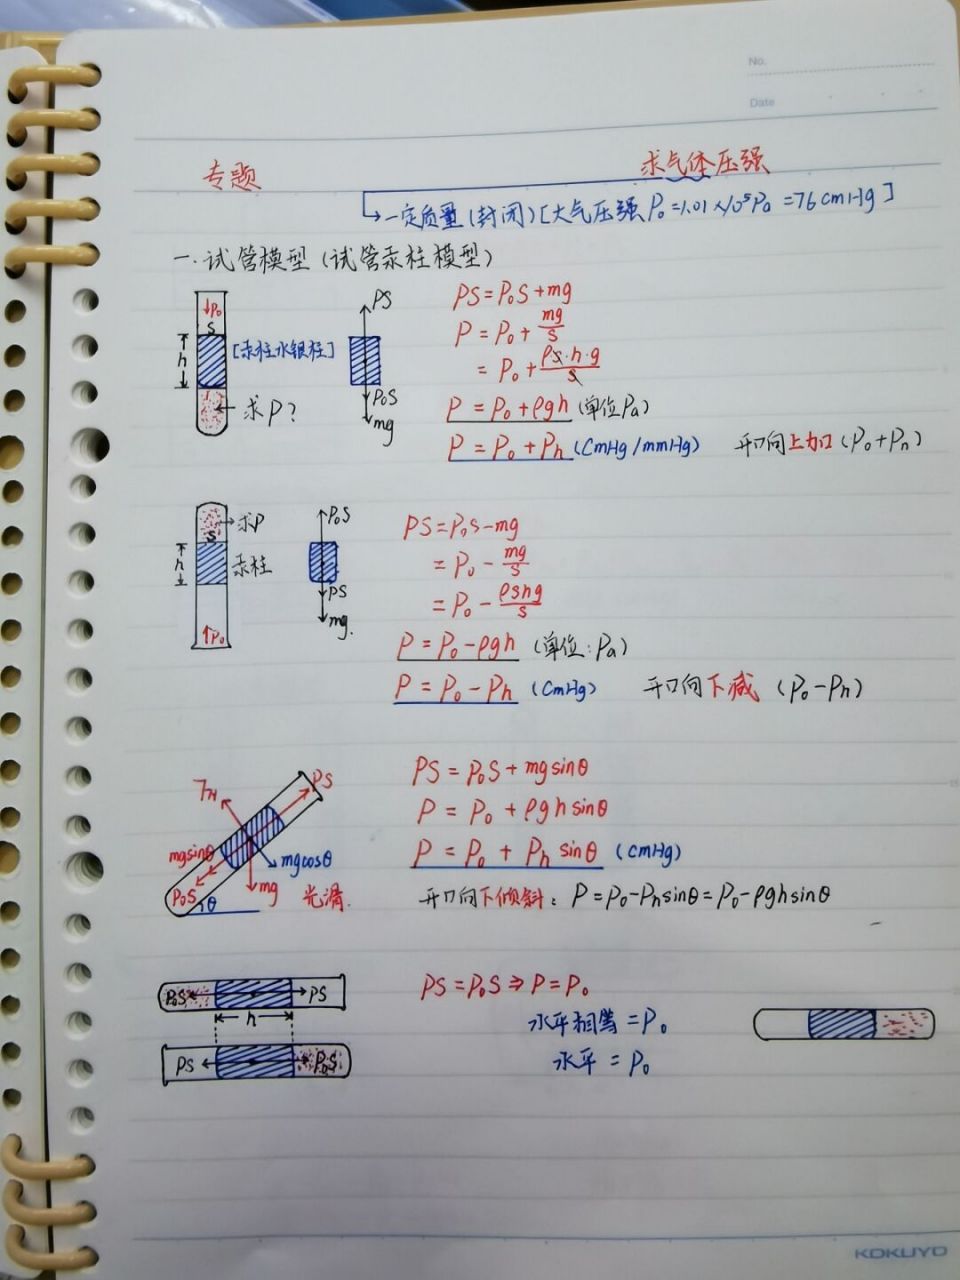 No.
Date
专题 求气体压强
→一定质量(封闭)[大气压强P₀=1.01×10⁵Pa=76cmHg]
一.试管模型(试管汞柱模型)
↓P₀
S
h
[汞柱水银柱]
求P?
PS
P₀S
mg
PS=P₀S+mg
P=P₀+mg/S
=P₀+ρS·h·g/S
P=P₀+ρgh(单位Pa)
P=P₀+Ph(cmHg/mmHg) 开口向上加(P₀+Ph)
求P
S
h
汞柱
↑P₀
P₀S
PS
mg.
PS=P₀S-mg
=P₀-mg/S
=P₀-ρShg/S
P=P₀-ρgh (单位:Pa)
P=P₀-Ph (cmHg) 开口向下减 (P₀-Ph)
PS
mgsinθ
mgcosθ
P₀S
θ
mg
光滑.
PS=P₀S+mgsinθ
P=P₀+ρghsinθ
P=P₀+Phsinθ (cmHg)
开口向下倾斜: P=P₀-Phsinθ=P₀-ρghsinθ
P₀S PS
h
PS P₀S
PS=P₀S⇒P=P₀
水平相等=P₀
水平=P₀
KOKUYO